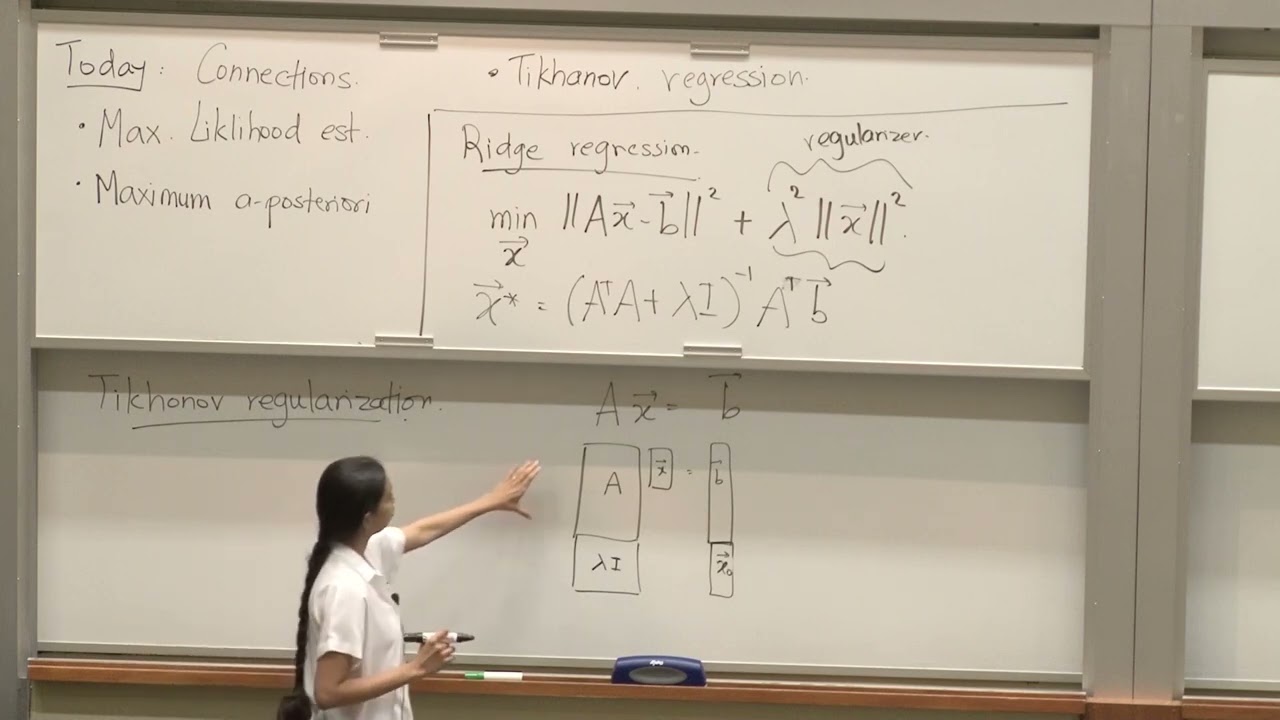 Today: Connections.
• Max. Liklihood est.
• Maximum a-posteriori
• Tikhanov. regression.
Ridge regression.
regularizer.
min ‖Ax⃗-b⃗‖² + λ²‖x⃗‖².
x⃗
x⃗* = (AᵀA + λI)⁻¹ Aᵀb⃗
Tikhonov regularization.
Ax⃗ = b⃗
A x⃗ = b⃗
λI x⃗₀
expo